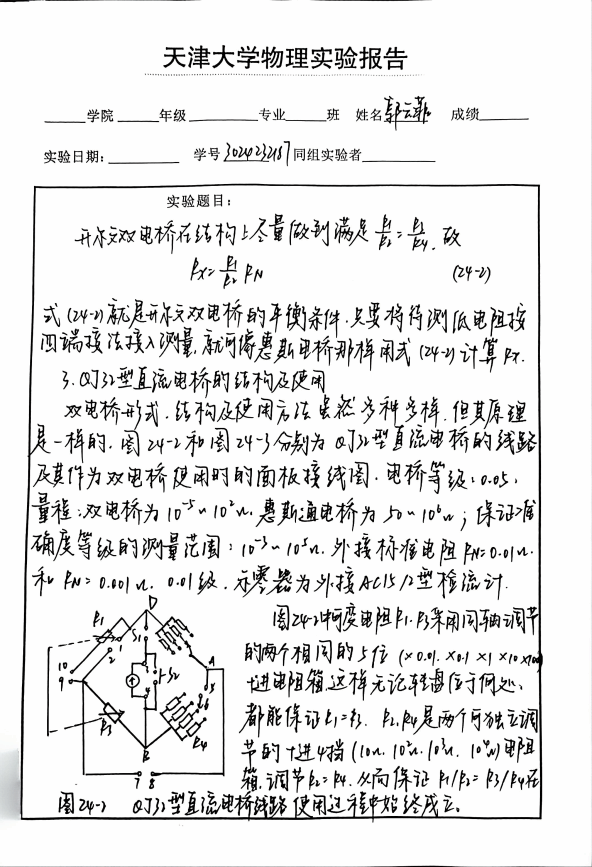 天津大学物理实验报告
学院 年级 专业 班 姓名 郭云菲 成绩
实验日期: 学号 3024232167 同组实验者
实验题目:
开尔文双电桥在结构上尽量做到满足 R1/R2 = R3/R4, 故
Rx = R1/R2 RN (24-2)
式(24-2)就是开尔文双电桥的平衡条件.只要将待测低电阻按
四端接法接入测量,就可像惠斯电桥那样用式(24-2)计算Rx.
3. QJ32型直流电桥的结构及使用
双电桥形式、结构及使用方法虽然多种多样,但其原理
是一样的.图24-2和图24-3分别为QJ32型直流电桥的线路
及其作为双电桥使用时的面板接线图.电桥等级:0.05,
量程:双电桥为10⁻⁵~10²Ω,惠斯通电桥为50~10⁶Ω;保证准
确度等级的测量范围:10⁻³~10⁵Ω.外接标准电阻RN=0.01Ω
和RN=0.001Ω, 0.01级.示零器为外接AC15/2型检流计.
图24-2中可变电阻R1、R3采用同轴调节
的两个相同的5位(×0.01 ×0.1 ×1 ×10 ×100)
十进电阻箱,这样无论转盘位于何处,
都能保证R1=R3. R2、R4是两个可独立调
节的十进4挡(10Ω、10²Ω、10³Ω、10⁴Ω)电阻
箱,调节R2=R4.从而保证R1/R2=R3/R4在
使用过程中始终成立。
R1 D S1 1 2 10 9 3 4 S2 A 5 6 R3 R4 B 7 8
图24-2 QJ32型直流电桥线路